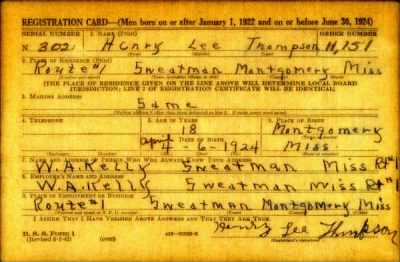 REGISTRATION CARD—(Men born on or after January 1, 1922 and on or before June 30, 1924)
SERIAL NUMBER 1. NAME (Print) ORDER NUMBER
N 302 Henry Lee Thompson 11,751
2. PLACE OF RESIDENCE (Print)
Route #1 Sweatman Montgomery Miss
[THE PLACE OF RESIDENCE GIVEN ON THE LINE ABOVE WILL DETERMINE LOCAL BOARD
JURISDICTION; LINE 2 OF REGISTRATION CERTIFICATE WILL BE IDENTICAL]
3. MAILING ADDRESS
Same
4. TELEPHONE 5. AGE IN YEARS 6. PLACE OF BIRTH
18 Montgomery
DATE OF BIRTH
April
4-6-1924 Miss.
7. NAME AND ADDRESS OF PERSON WHO WILL ALWAYS KNOW YOUR ADDRESS
W.A. Kelly Sweatman Miss Rt #1
8. EMPLOYER'S NAME AND ADDRESS
W.A. Kelly Sweatman Miss Rt #1
9. PLACE OF EMPLOYMENT OR BUSINESS
Route #1 Sweatman Montgomery Miss
I AFFIRM THAT I HAVE VERIFIED ABOVE ANSWERS AND THAT THEY ARE TRUE.
D. S. S. Form 1
Henry Lee Thompson